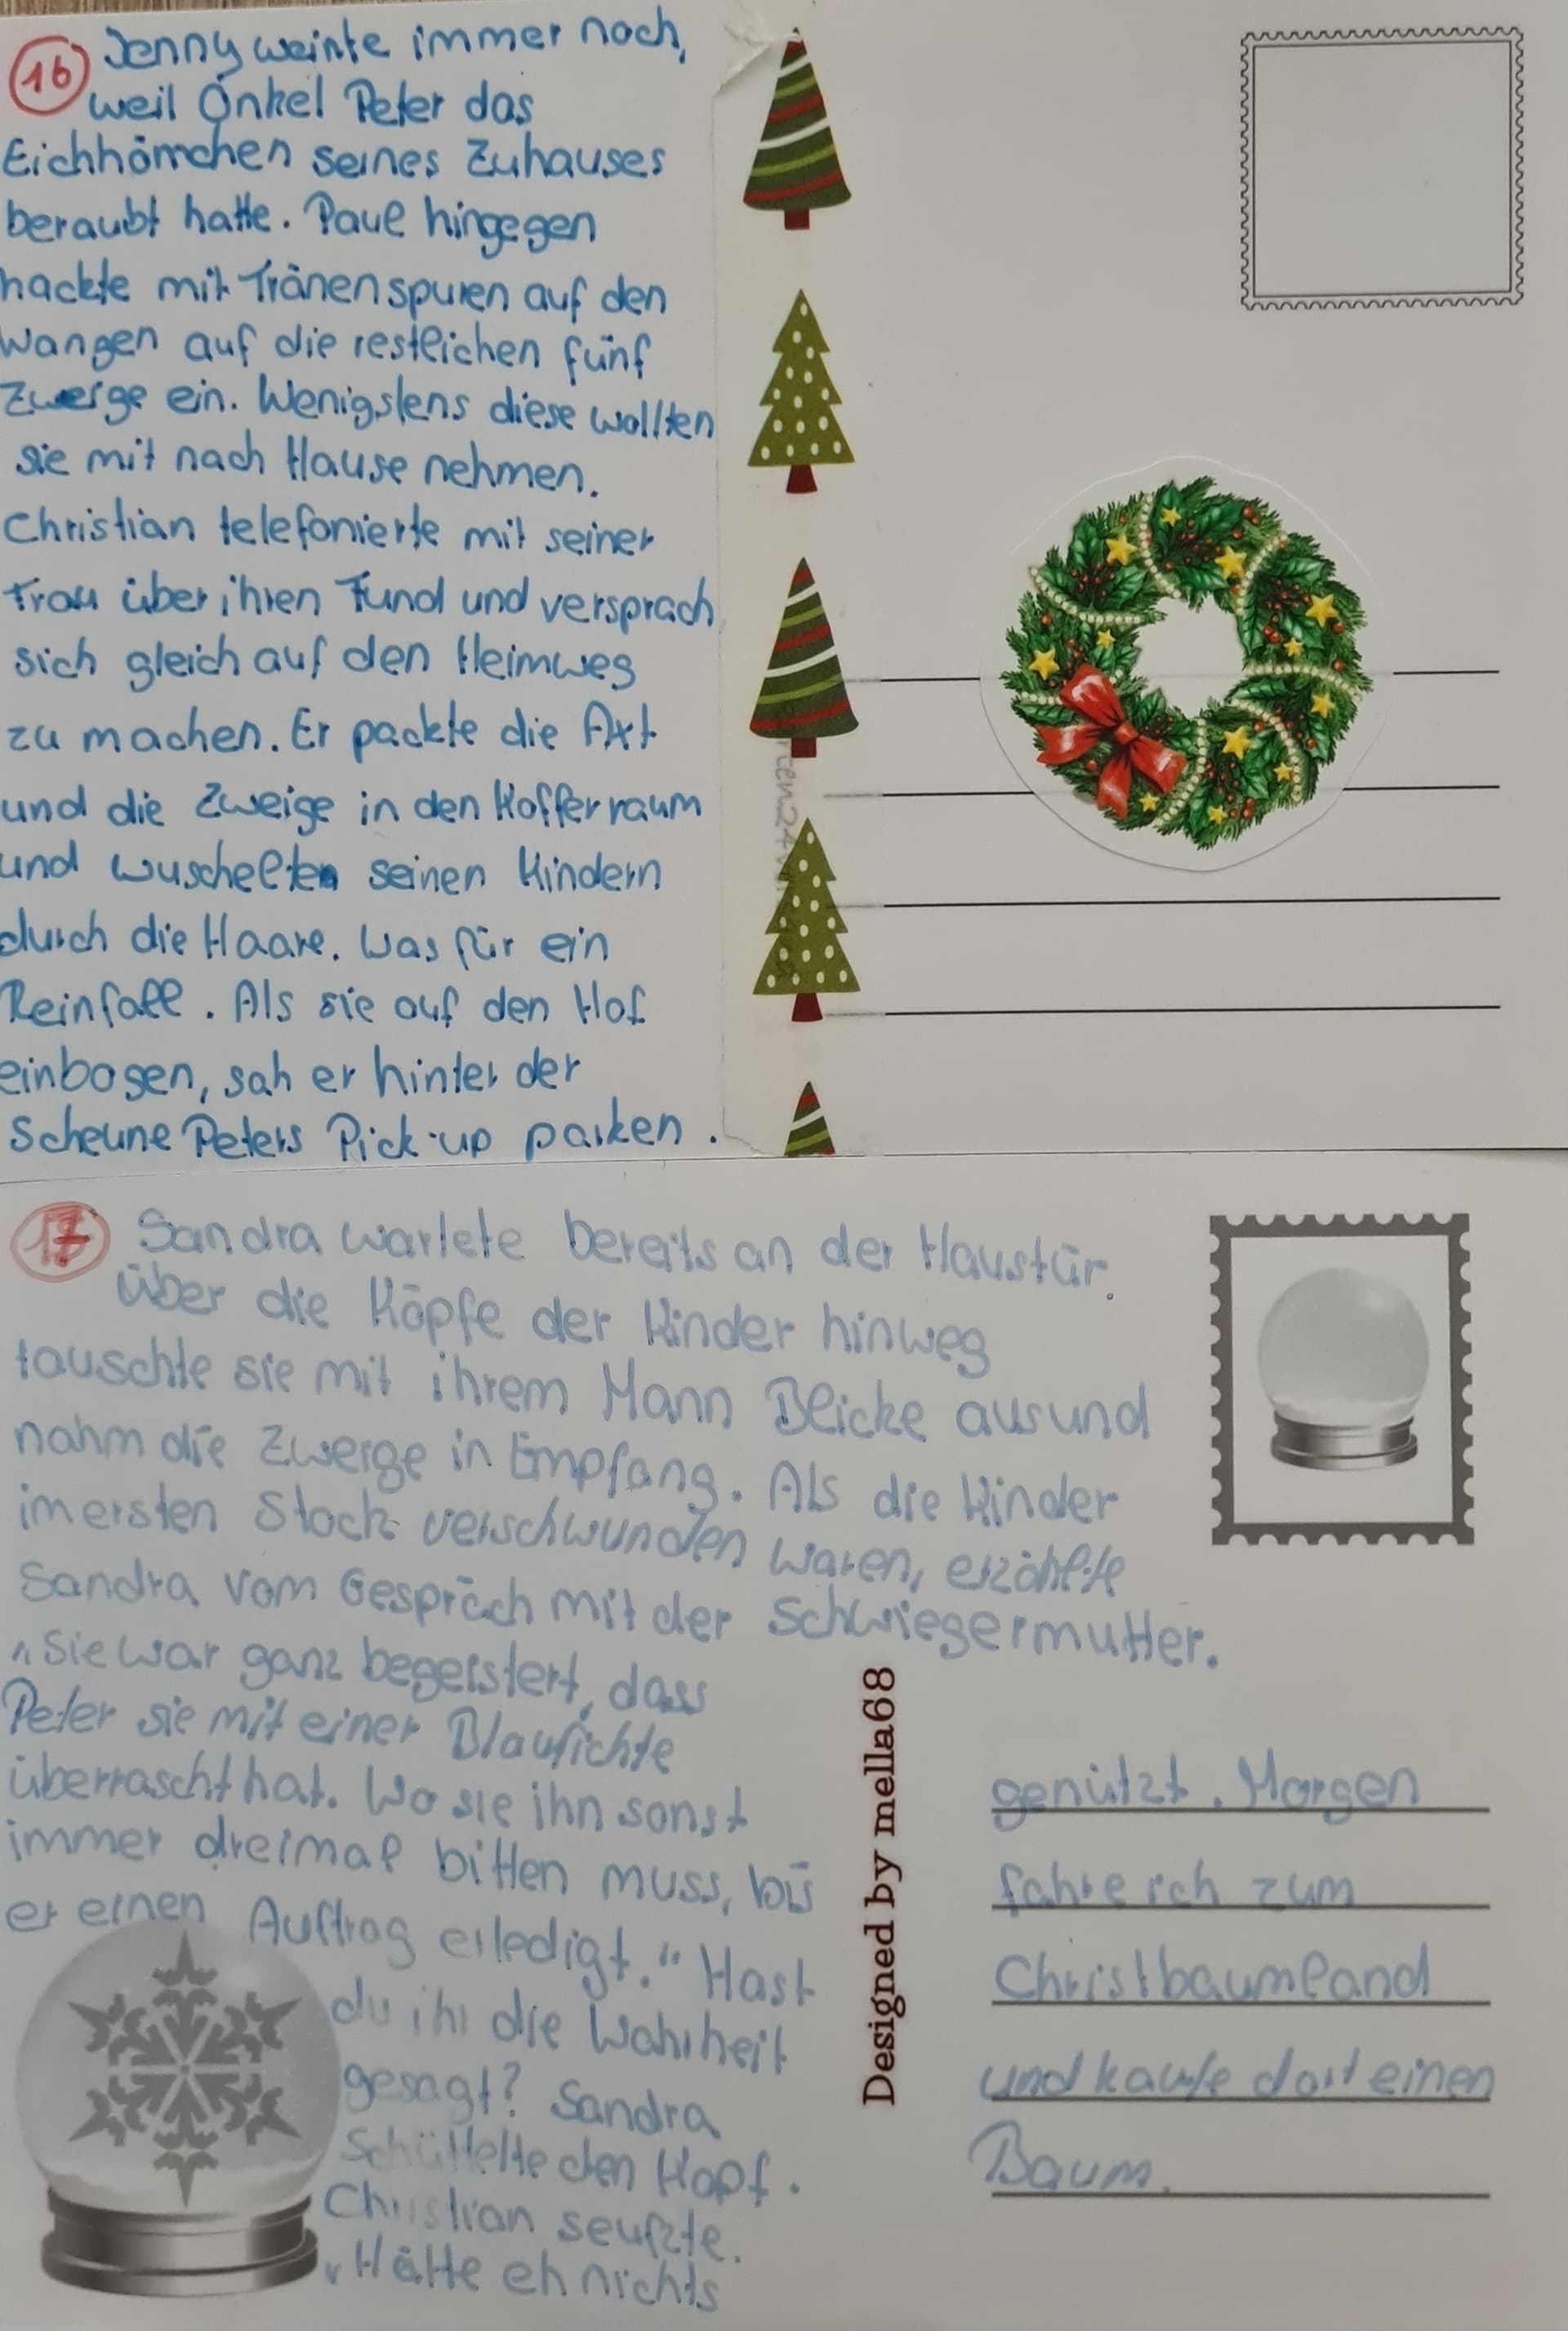 16 Jenny weinte immer noch,
weil Onkel Peter das
Eichhörnchen seines Zuhauses
beraubt hatte. Paul hingegen
hackte mit Tränenspuren auf den
Wangen auf die restlichen fünf
Zwerge ein. Wenigstens diese wollten
sie mit nach Hause nehmen.
Christian telefonierte mit seiner
Frau über ihren Fund und versprach
sich gleich auf den Heimweg
zu machen. Er packte die Axt
und die Zweige in den Kofferraum
und wuschelten seinen Kindern
durch die Haare. Was für ein
Reinfall. Als sie auf den Hof
einbogen, sah er hinter der
Scheune Peters Pick-up parken.
17 Sandra wartete bereits an der Haustür.
Über die Köpfe der Kinder hinweg
tauschte sie mit ihrem Mann Blicke aus und
nahm die Zwerge in Empfang. Als die Kinder
im ersten Stock verschwunden waren, erzählte
Sandra vom Gespräch mit der Schwiegermutter.
"Sie war ganz begeistert, dass
Peter sie mit einer Blaufichte
überrascht hat. Wo sie ihn sonst
immer dreimal bitten muss, bis
er einen Auftrag erledigt." Hast
du ihr die Wahrheit
gesagt? Sandra
schüttelte den Kopf.
Christian seufzte.
"Hätte eh nichts
genützt. Morgen
fahre ich zum
Christbaumland
und kaufe dort einen
Baum.
Designed by mella68